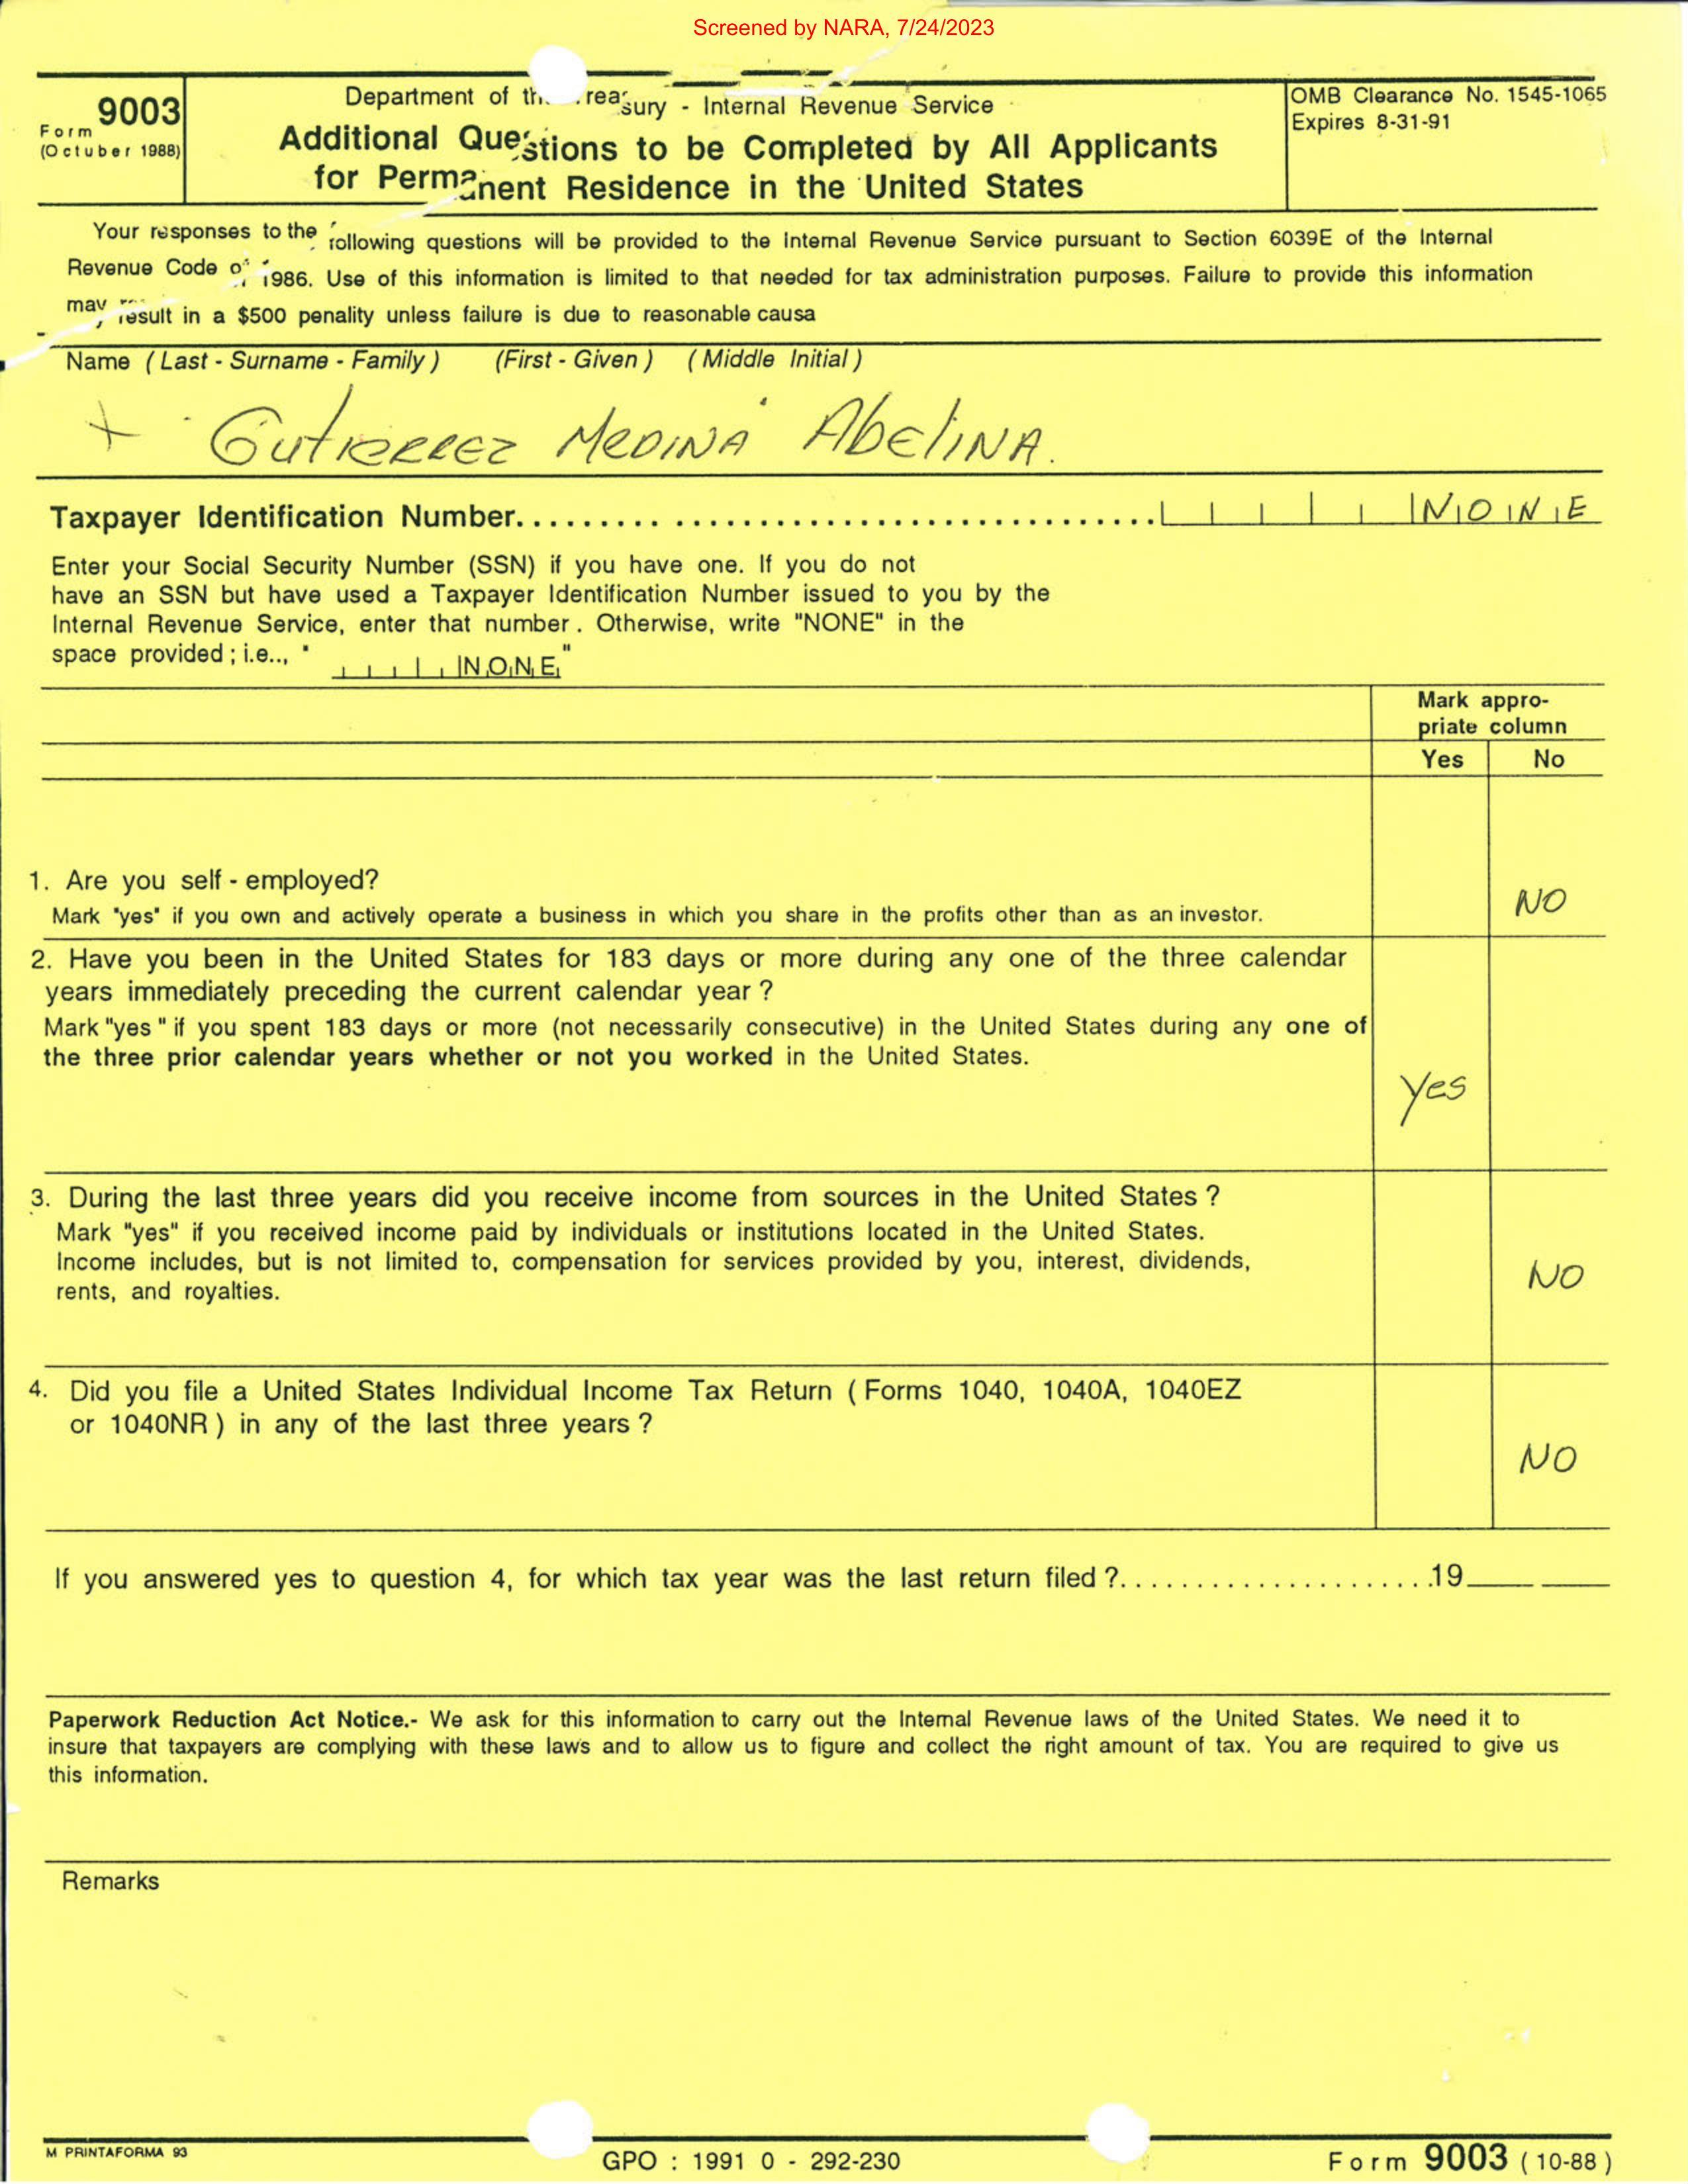 Screened by NARA, 7/24/2023
Form 9003
(Octuber 1988)
Department of the Treasury - Internal Revenue Service
Additional Questions to be Completed by All Applicants
for Permanent Residence in the United States
OMB Clearance No. 1545-1065
Expires 8-31-91
Your responses to the following questions will be provided to the Internal Revenue Service pursuant to Section 6039E of the Internal
Revenue Code of 1986. Use of this information is limited to that needed for tax administration purposes. Failure to provide this information
may result in a $500 penality unless failure is due to reasonable causa
Name (Last - Surname - Family) (First - Given) (Middle Initial)
+ Gutierrez Medina Abelina.
Taxpayer Identification Number.......... NONE
Enter your Social Security Number (SSN) if you have one. If you do not
have an SSN but have used a Taxpayer Identification Number issued to you by the
Internal Revenue Service, enter that number. Otherwise, write "NONE" in the
space provided; i.e.., " NONE "
Mark appro-
priate column
Yes No
1. Are you self - employed?
Mark "yes" if you own and actively operate a business in which you share in the profits other than as an investor.
NO
2. Have you been in the United States for 183 days or more during any one of the three calendar
years immediately preceding the current calendar year ?
Mark "yes" if you spent 183 days or more (not necessarily consecutive) in the United States during any one of
the three prior calendar years whether or not you worked in the United States.
Yes
3. During the last three years did you receive income from sources in the United States ?
Mark "yes" if you received income paid by individuals or institutions located in the United States.
Income includes, but is not limited to, compensation for services provided by you, interest, dividends,
rents, and royalties.
NO
4. Did you file a United States Individual Income Tax Return (Forms 1040, 1040A, 1040EZ
or 1040NR) in any of the last three years ?
NO
If you answered yes to question 4, for which tax year was the last return filed ?..........19
Paperwork Reduction Act Notice.- We ask for this information to carry out the Internal Revenue laws of the United States. We need it to
insure that taxpayers are complying with these laws and to allow us to figure and collect the right amount of tax. You are required to give us
this information.
Remarks
M PRINTAFORMA 93
GPO : 1991 0 - 292-230
Form 9003 (10-88)